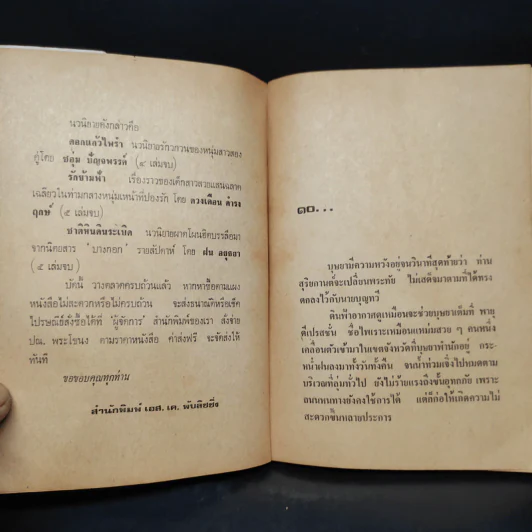 นวนิยายดังกล่าวคือ
ดอกแก้วไพร้า นวนิยายรักวกวนของหนุ่มสาวสอง
คู่โดย ชอุ่ม ปัญจพรรค์ (๔ เล่มจบ)
รักข้ามฟ้า เรื่องราวของเด็กสาวสวยแสนฉลาด
เฉลียวในท่ามกลางหนุ่มเหน้าที่ปองรัก โดย ดวงเดือน ดำรง
ฤกษ์ (๕ เล่มจบ)
ชาติหินดินระเบิด นวนิยายผาดโผนฮิตบรรลือมา
จากนิตยสาร "บางกอก" รายสัปดาห์ โดย ฝน อยุธยา
(๕ เล่มจบ)
บัดนี้ วางตลาดครบถ้วนแล้ว หากซื้อตามแผง
หนังสือไม่สะดวกหรือไม่ครบถ้วน จะส่งธนาณัติหรือเช็ค
ไปรษณีย์สั่งซื้อได้ที่ 'ผู้จัดการ' สำนักพิมพ์ของเรา สั่งจ่าย
ปณ. พระโขนง ตามราคาหนังสือ ค่าส่งฟรี จะจัดส่งให้
ทันที
ขอขอบคุณทุกท่าน
สำนักพิมพ์ เอส. เค. พับลิชชิ่ง
๑๐...
บุษยามีความหวังอยู่จนวินาทีสุดท้ายว่า ท่าน
สุริยกานต์จะเปลี่ยนพระทัย ไม่เสด็จมาตามที่ได้ทรง
ตกลงไว้กับนายบุญทวี
ดินฟ้าอากาศดูเหมือนจะช่วยบุษยาเต็มที่ พายุ
ดีเปรสชั่น ชื่อไพเราะเหมือนแหม่มสวย ๆ คนหนึ่ง
เคลื่อนตัวเข้ามาในเขตจังหวัดที่บุษยาพำนักอยู่ กระ
หน่ำฝนลงมาทั้งวันทั้งคืน จนน้ำท่วมเจิ่งไปหมดตาม
บริเวณที่ลุ่มทั่วไป ยังไม่ร้ายแรงถึงขั้นอุทกภัย เพราะ
ถนนหนทางยังคงใช้การได้ แต่ก็ก่อให้เกิดความไม่
สะดวกขึ้นหลายประการ